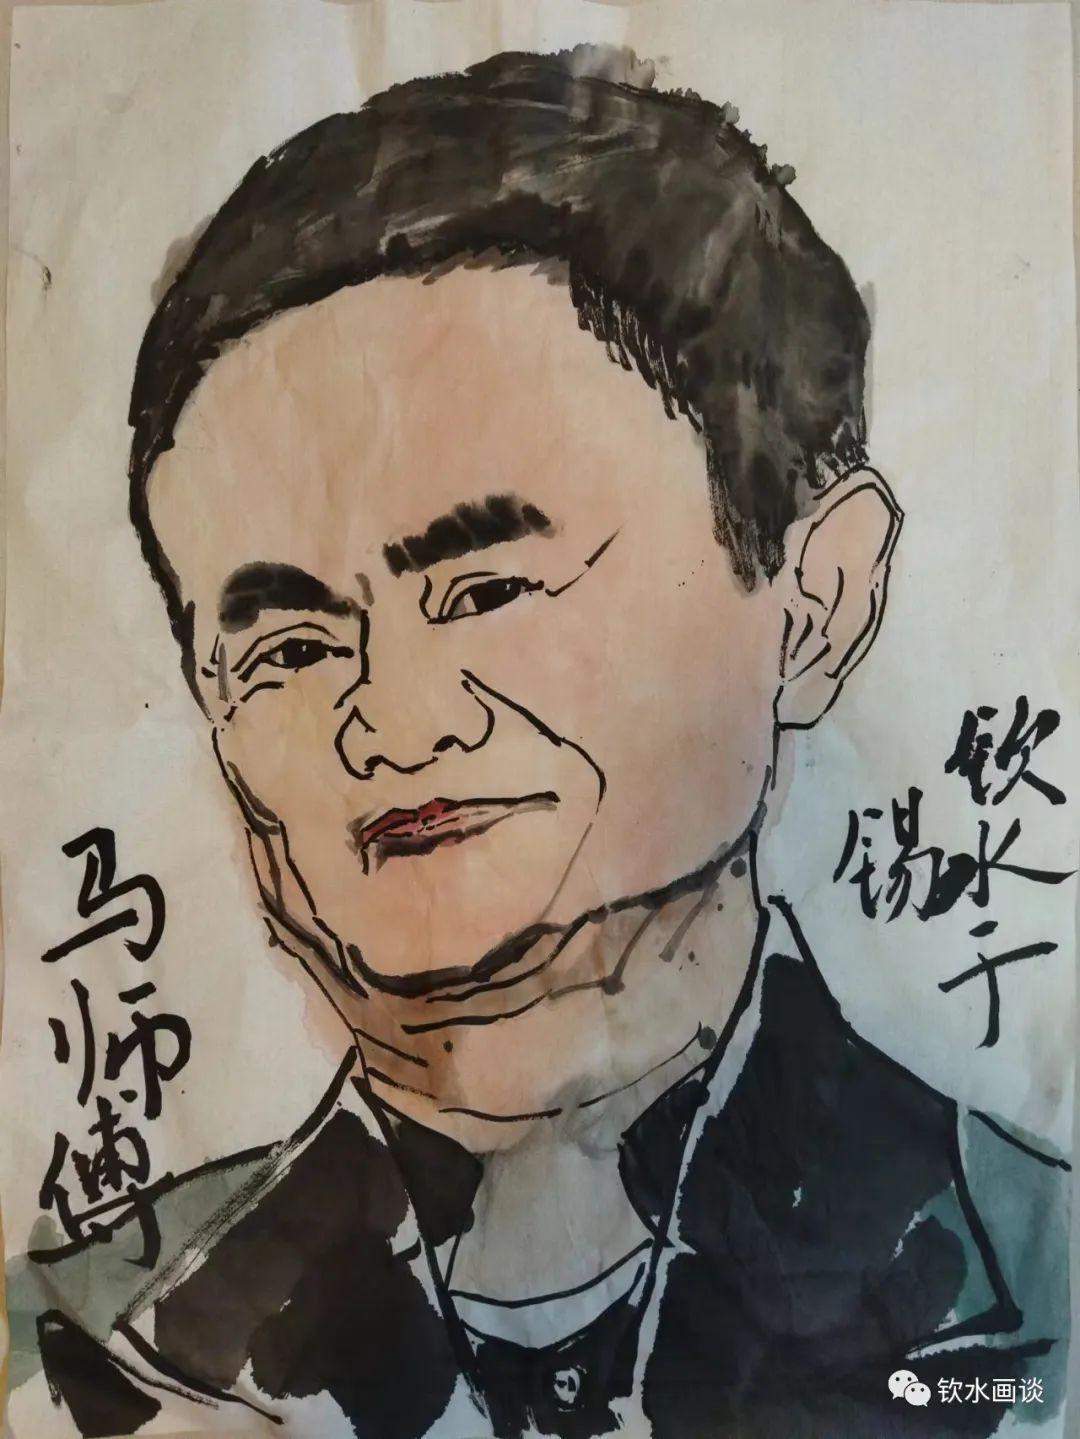 马师傅
钦水于
锡
钦水画谈